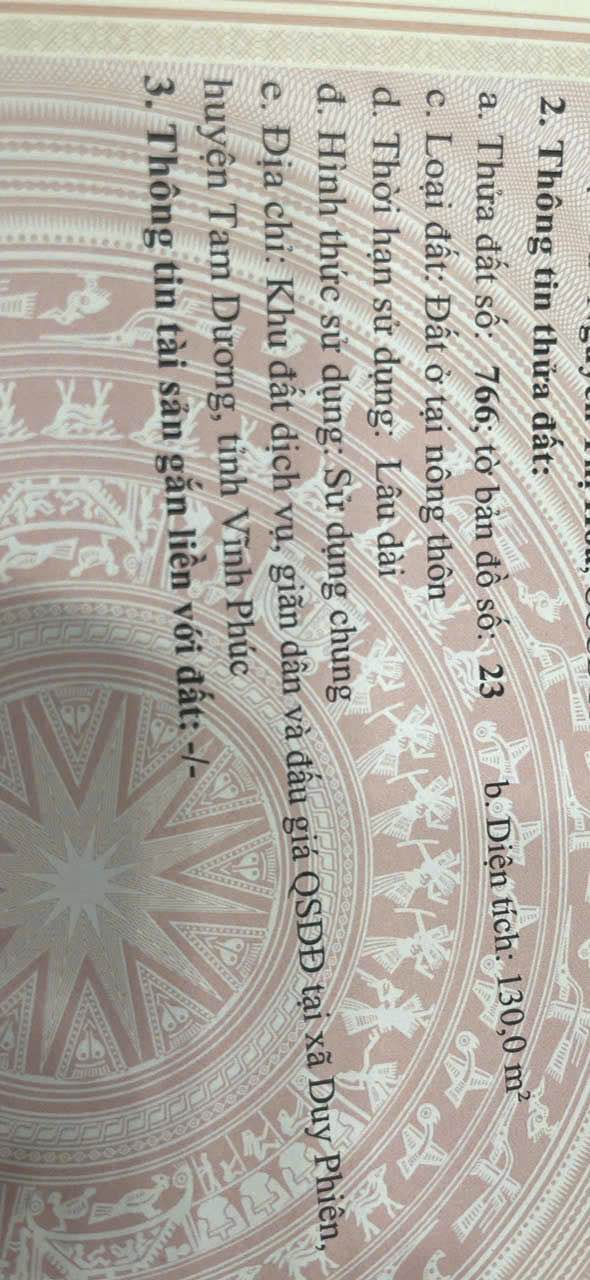 2. Thông tin thửa đất:
a. Thửa đất số: 766; tờ bản đồ số: 23 b. Diện tích: 130,0 m²
c. Loại đất: Đất ở tại nông thôn
d. Thời hạn sử dụng: Lâu dài
đ. Hình thức sử dụng: Sử dụng chung
e. Địa chỉ: Khu đất dịch vụ, giãn dân và đấu giá QSDĐ tại xã Duy Phiên,
huyện Tam Dương, tỉnh Vĩnh Phúc
3. Thông tin tài sản gắn liền với đất: -/-